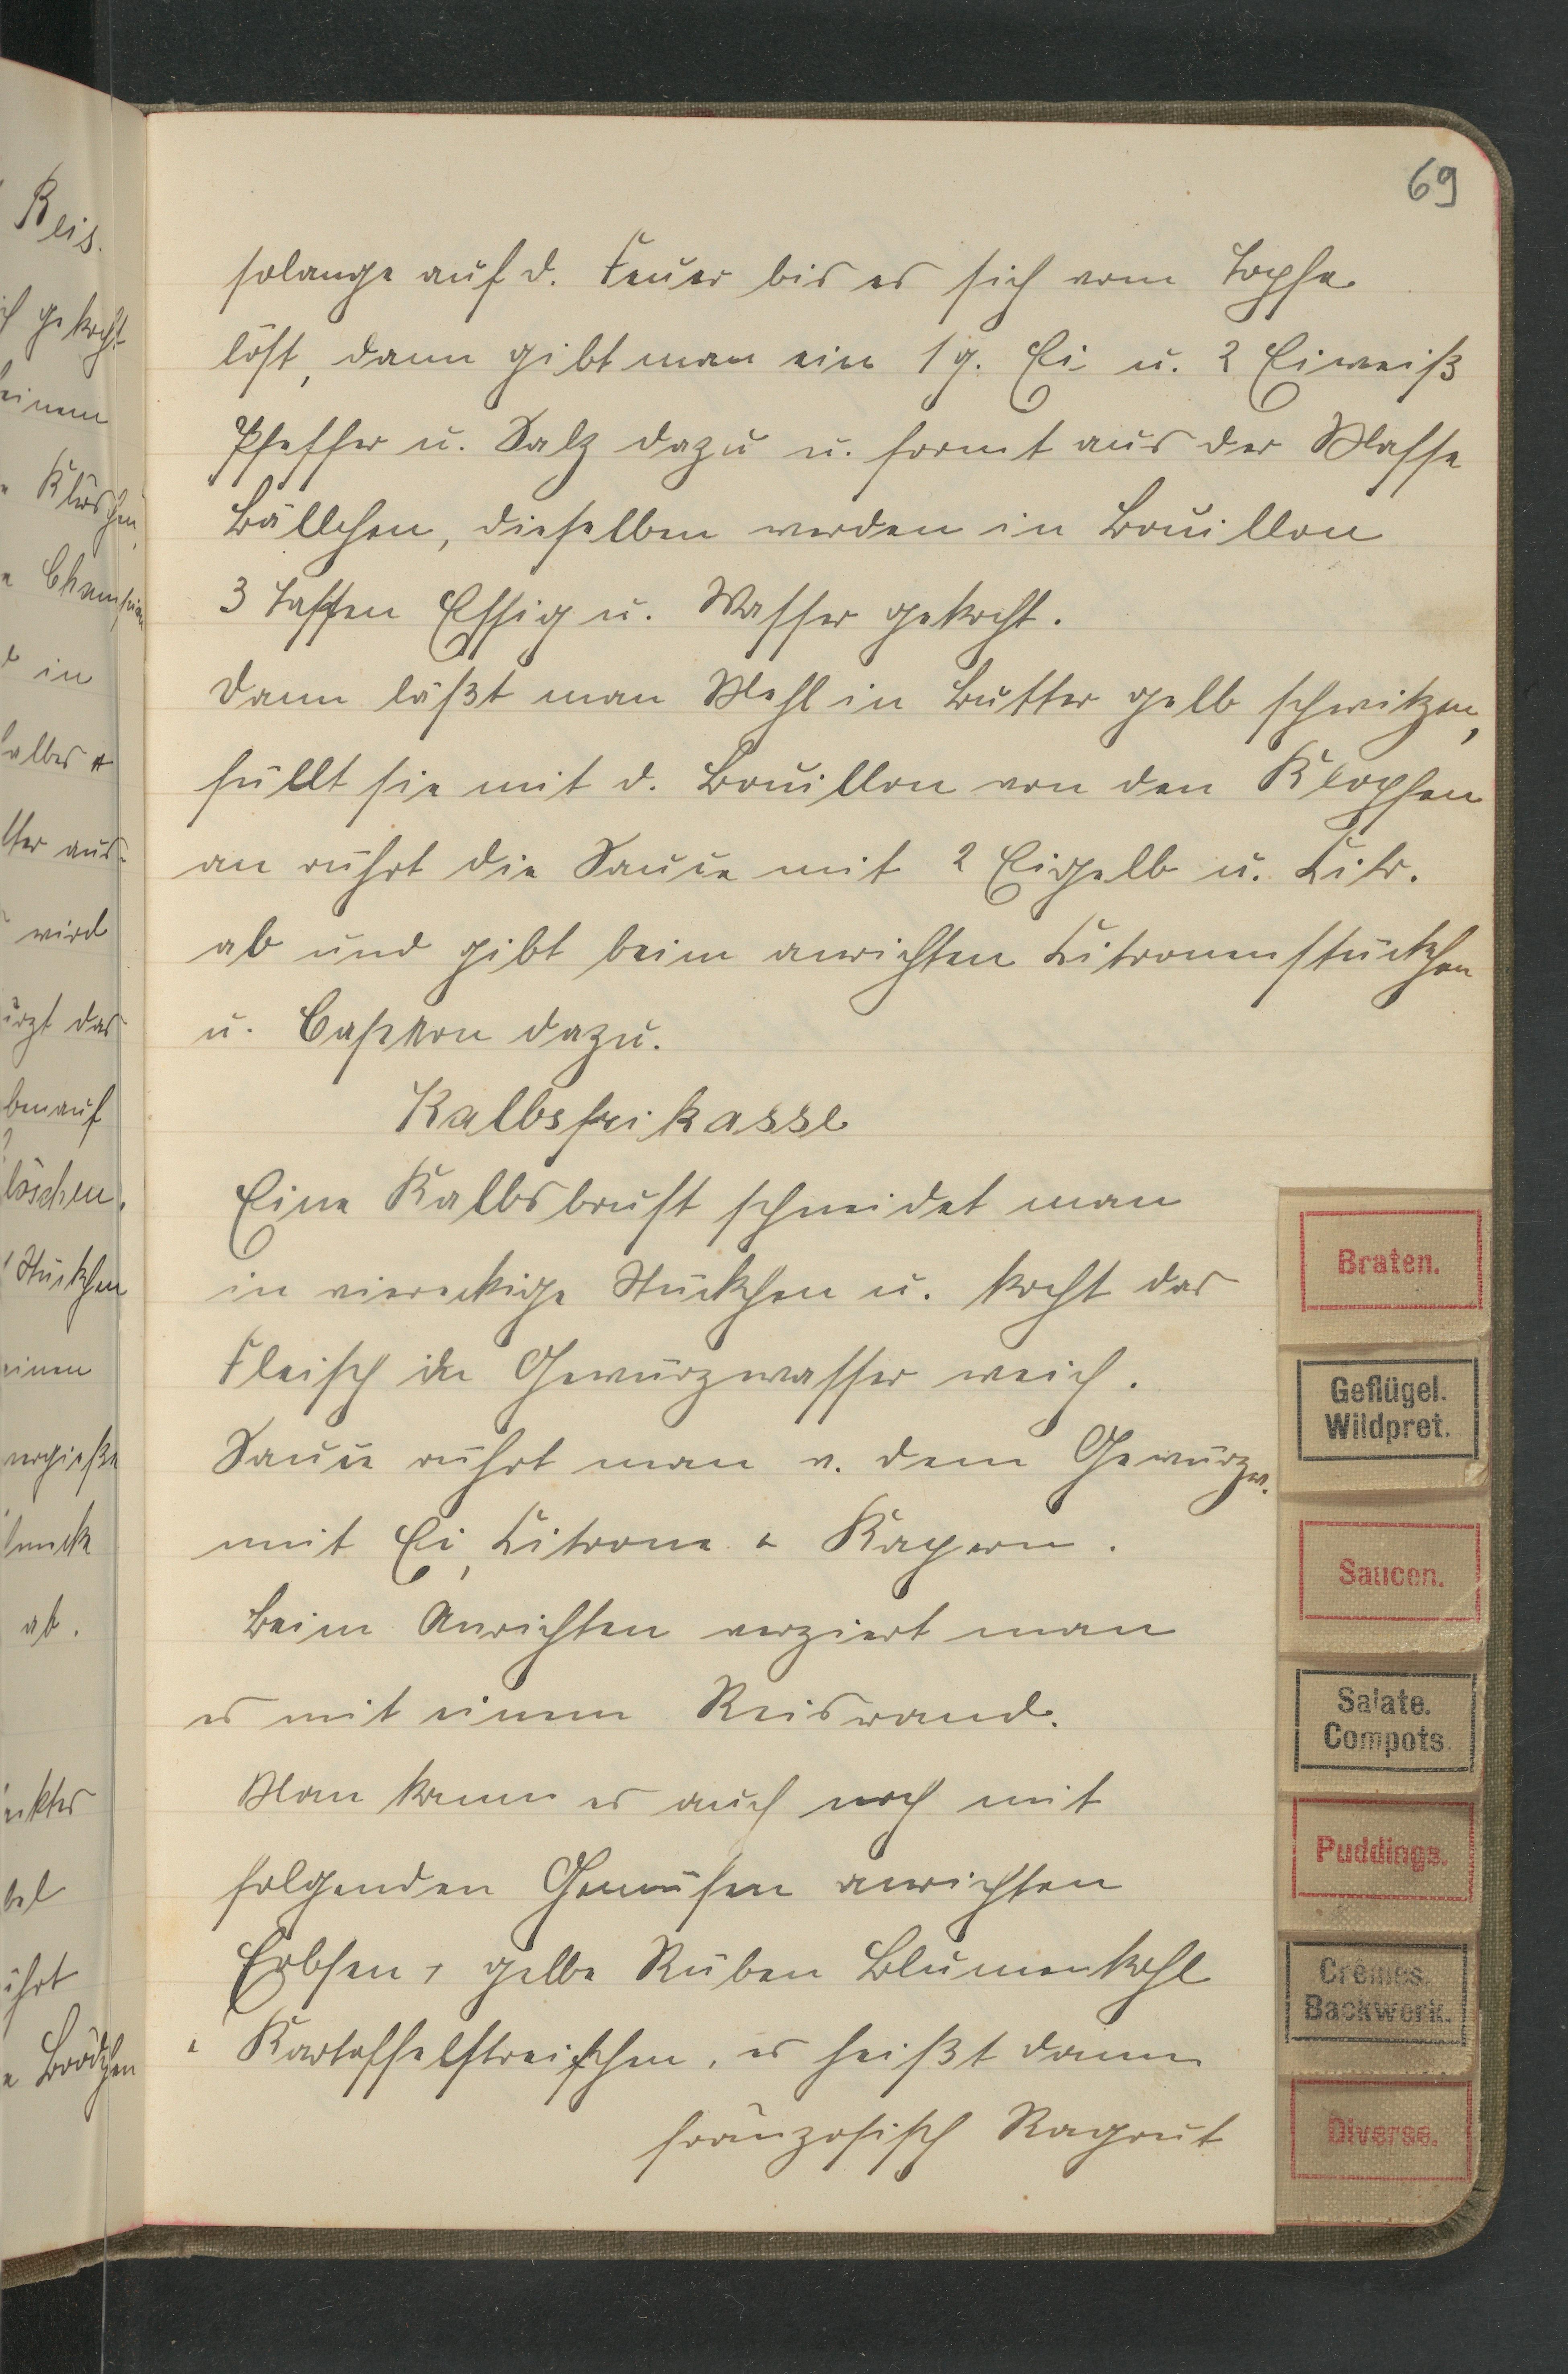 69
solange auf d. Feuer bis es sich vom Topfe
löst, dann gibt man ein 1 g. Ei u. 2 Eiweiß
Pfeffer u. Salz dazu u. formt aus der Masse
Bällchen, dieselben werden in Bouillon
3 Tassen Essig u. Wasser gekocht.
Dann läßt man Mehl in Butter gelb schwitzen,
füllt sie mit d. Bouillon von den Klopsen
an rührt die Sauce mit 2 Eigelb u. Citr.
ab und gibt beim anrichten Citronenstückchen
u. dazu.
Kalbsfrikasse
Eine Kalbsbrust schneidet man
in viereckige Stückchen u. kocht das
Fleisch in Gewürzwasser weich.
Sauce rührt man v. dem Gewürzw.
mit Ei, Citrone u Kapern.
Beim Anrichten verziert man
es mit einem Reisrand.
Man kann es auch noch mit
folgenden Gemüsen anrichten
Erbsen, gelbe Rüben Blumenkohl
u Kartoffelstreifchen, es heißt dann
französisch Ragout
Braten.
Geflügel.
Wildpret.
Saucen.
Salate.
Compots.
Puddings.
Crêmes.
Backwerk.
Diverse.
Reis.
gekocht
einem
Klöschen,
in
wird
das
Stückchen
einen
ab.
Brödchen